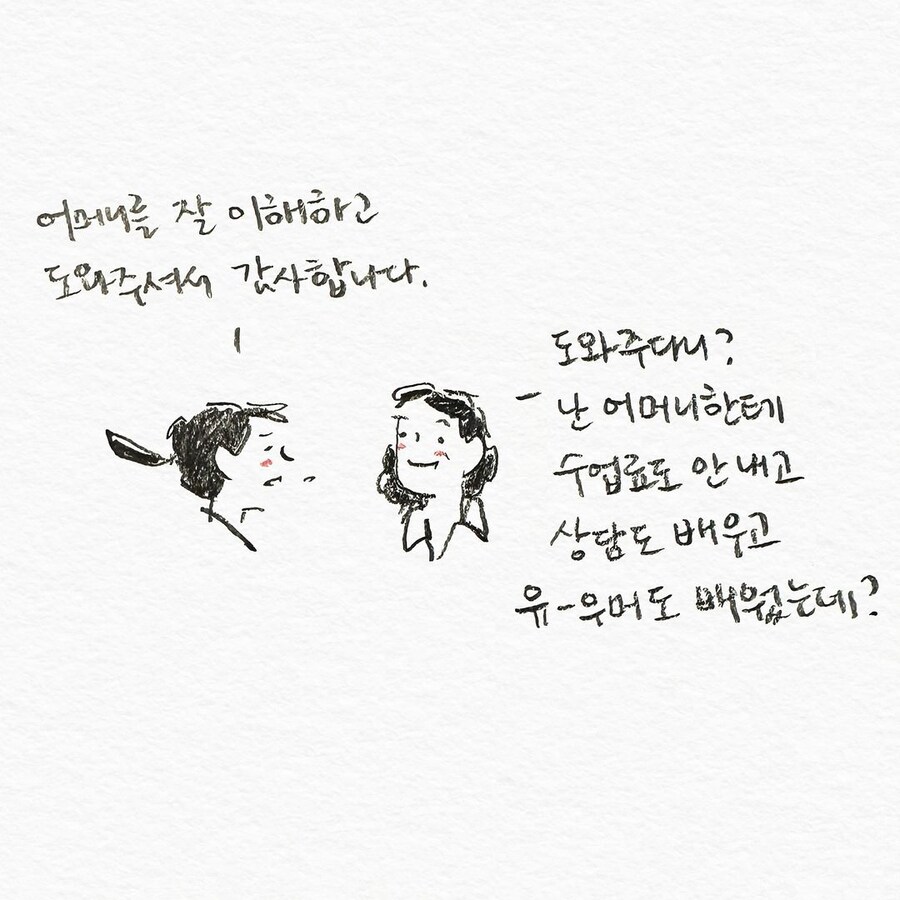 어머니를 잘 이해하고
도와주셔서 감사합니다.
도와주다니?
난 어머니한테
수업료도 안 내고
상담도 배우고
유-우머도 배웠는데?